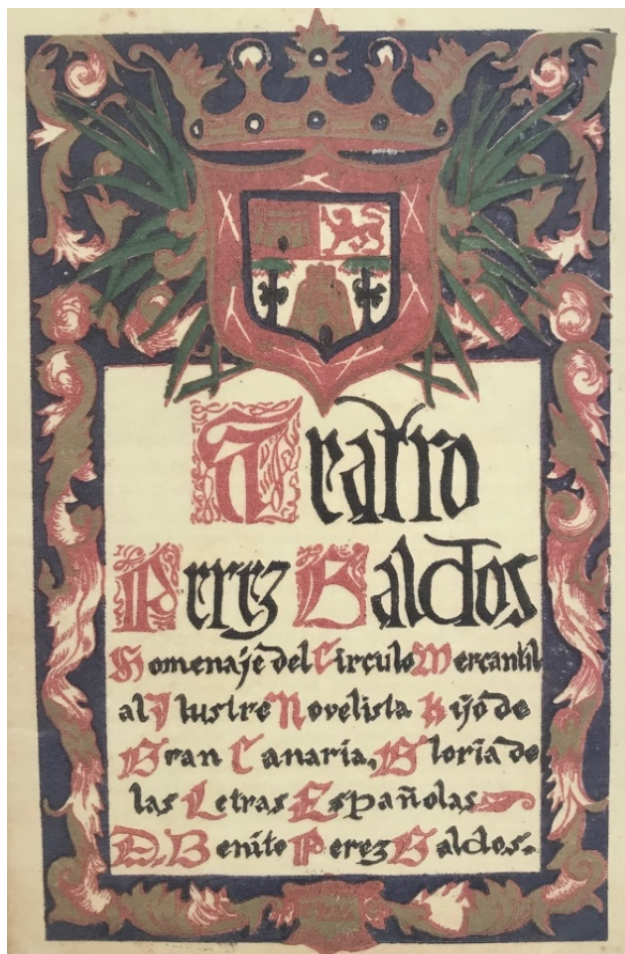 Teatro
Perez Galdos
Homenaje del Circulo Mercantil
al Ilustre Novelista Hijo de
Gran Canaria, Gloria de
las Letras Españolas
D. Benito Perez Galdos.